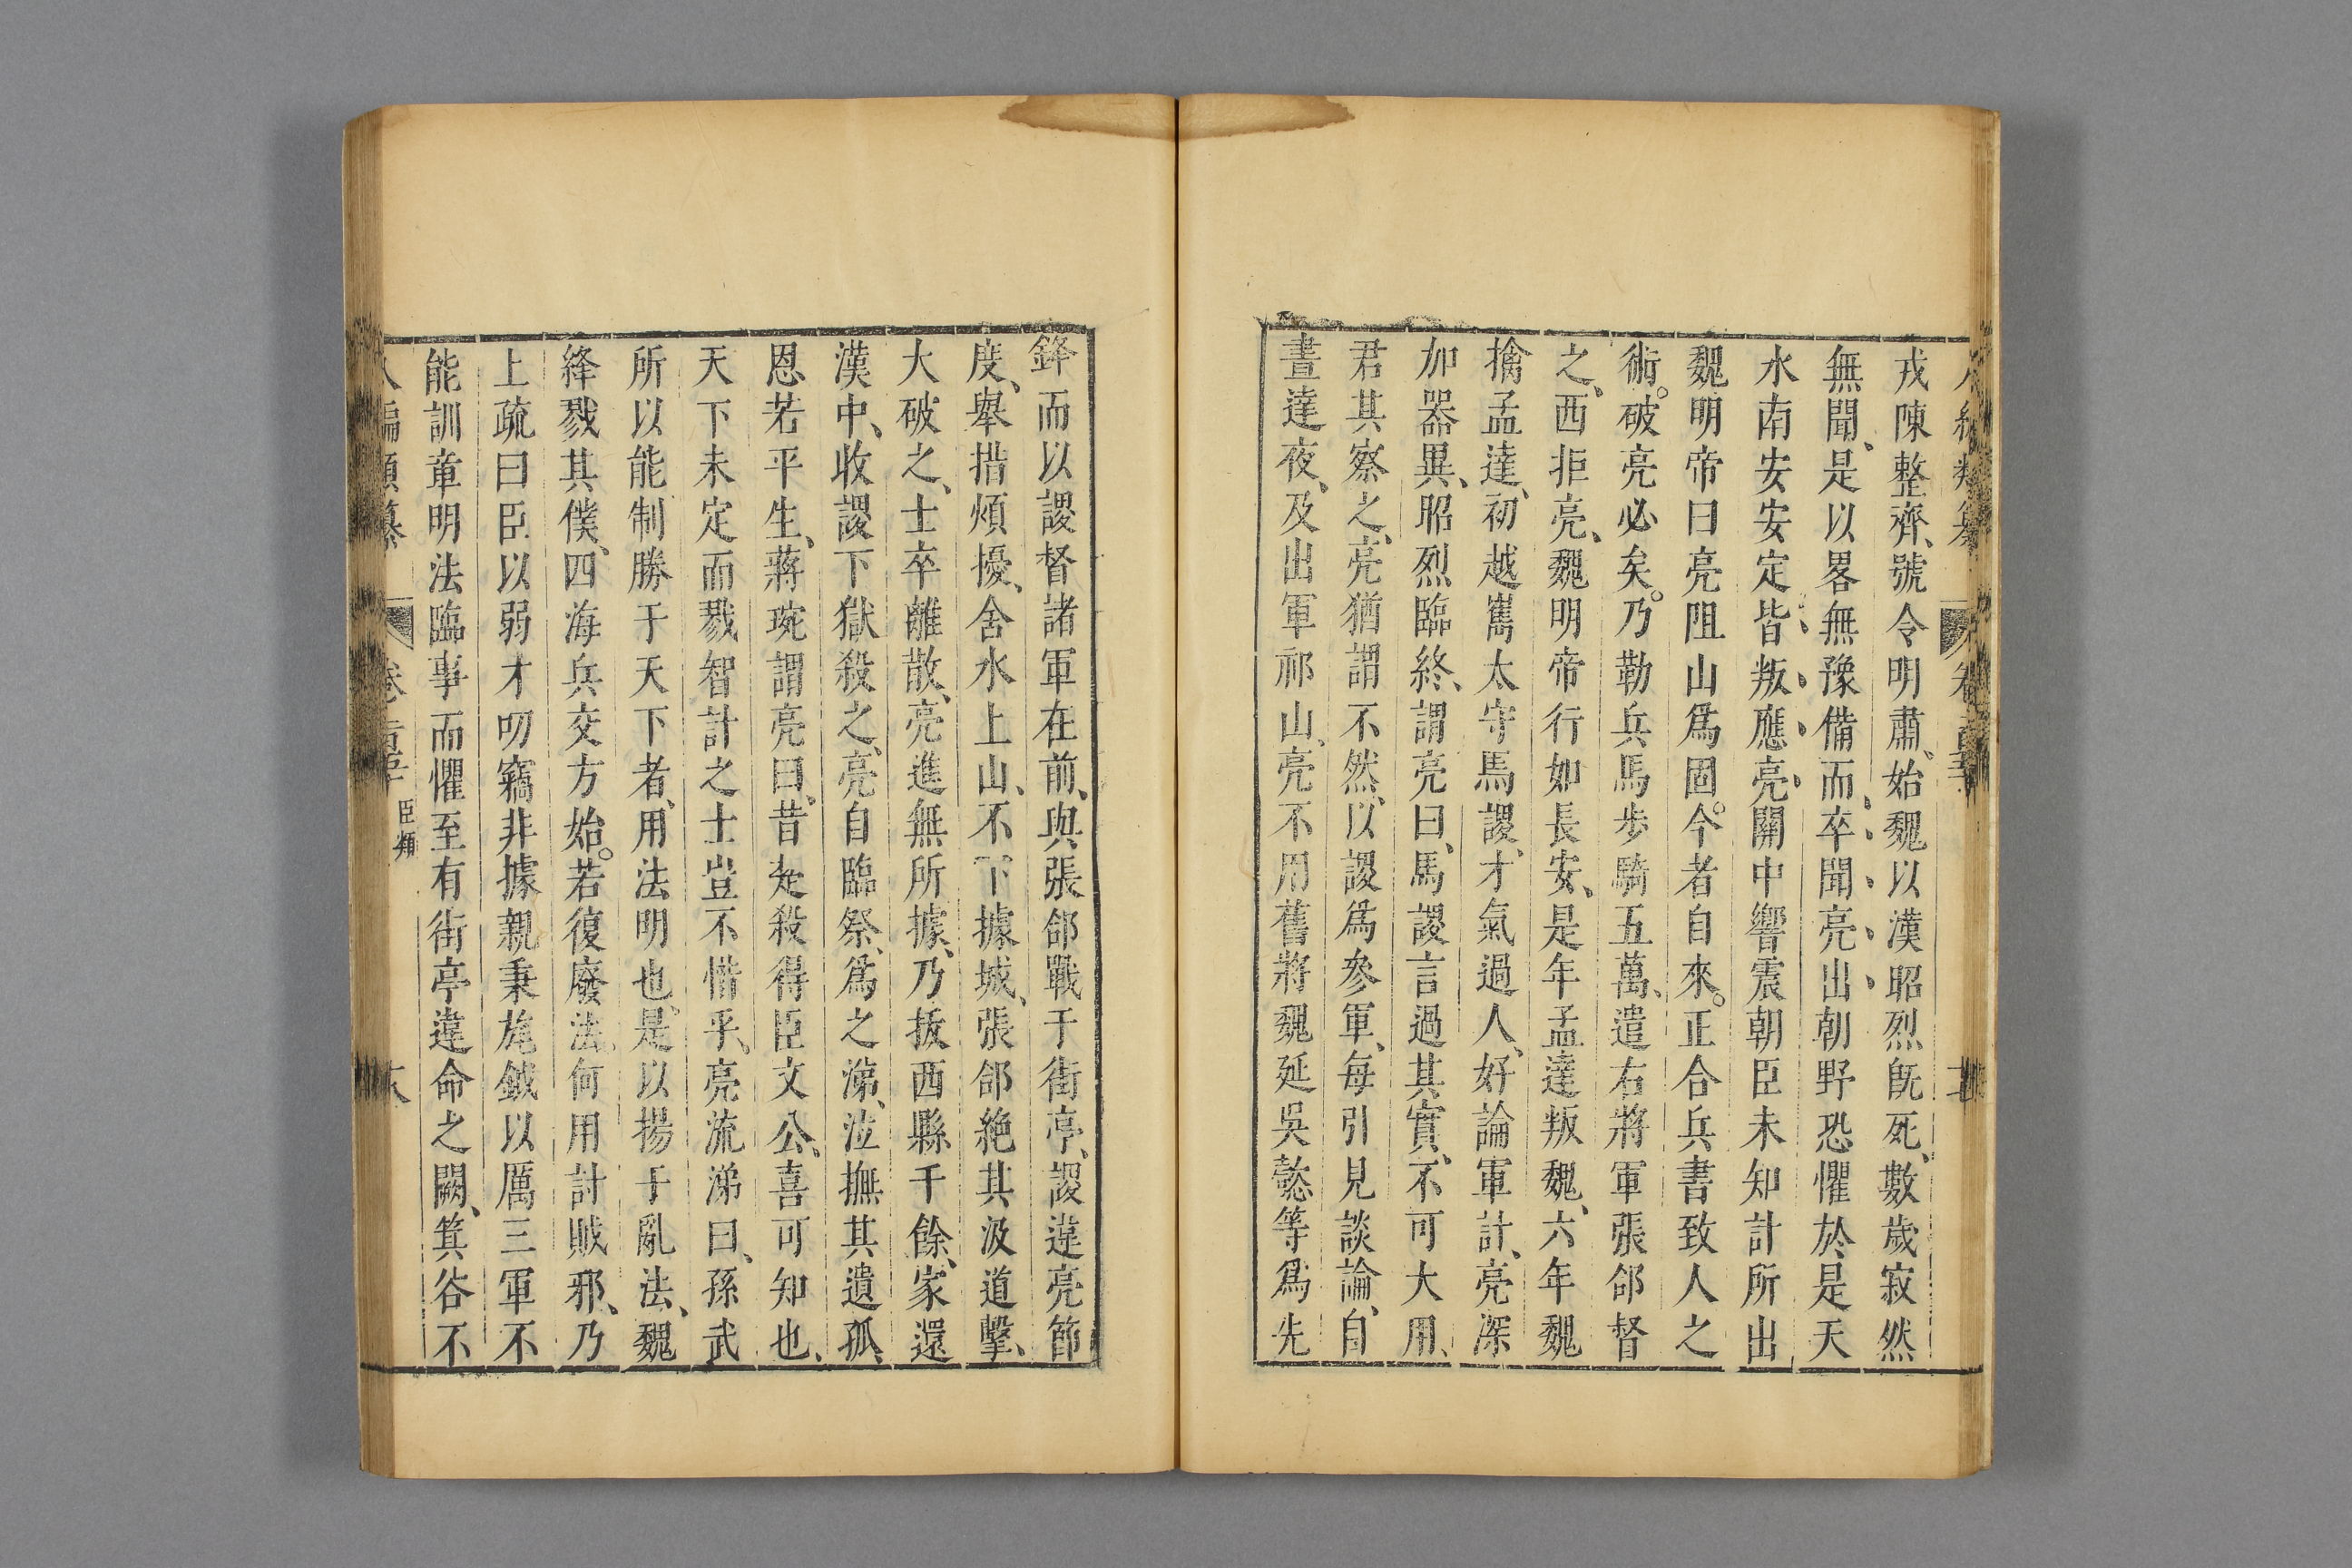 戎陳整齊、號令明肅、始魏以漢昭烈旣死、數歲寂然
無聞、是以畧無豫備而、卒、聞、亮、出、朝野恐懼於是天
水南安安定皆、叛、應、亮、關中響震朝臣未知計所出
魏明帝曰亮阻山爲固。今者自來。正合兵書致人之
術。破亮必矣。乃勒兵馬步騎五萬、遣右將軍張郃督
之、西拒亮、魏明帝行如長安、是年孟達叛魏、六年魏
擒孟達、初越嶲太守馬謖、才氣過人、好論軍計、亮深
加器異、昭烈臨終、謂亮曰、馬謖言過其實、不可大用、
君其察之、亮猶謂不然、以謖爲參軍、每引見談論、自
晝達夜、及出軍祁山、亮不用舊將魏延吳懿等爲先
鋒而以謖督諸軍在前、與張郃戰于街亭、謖違亮節
度、舉措煩擾、舍水上山、不下據城、張郃絶其汲道擊、
大破之、士卒離散、亮進無所據、乃拔西縣千餘、家還
漢中、收謖下獄殺之、亮自臨祭、爲之涕、泣撫其遺孤、
恩若平生、蔣琬謂亮曰、昔楚殺得臣文公、喜可知也、
天下未定而戮智計之士豈不惜乎、亮流涕曰、孫武
所以能制勝于天下者、用法明也、是以揚于亂法、魏
絳戮其僕、四海兵交方始。若復廢法、何用討賊邪、乃
上疏曰臣以弱才叨竊非據親秉旄鉞以厲三軍不
能訓章明法臨事而懼至有街亭違命之闕、箕谷不
編類纂 卷 臣類